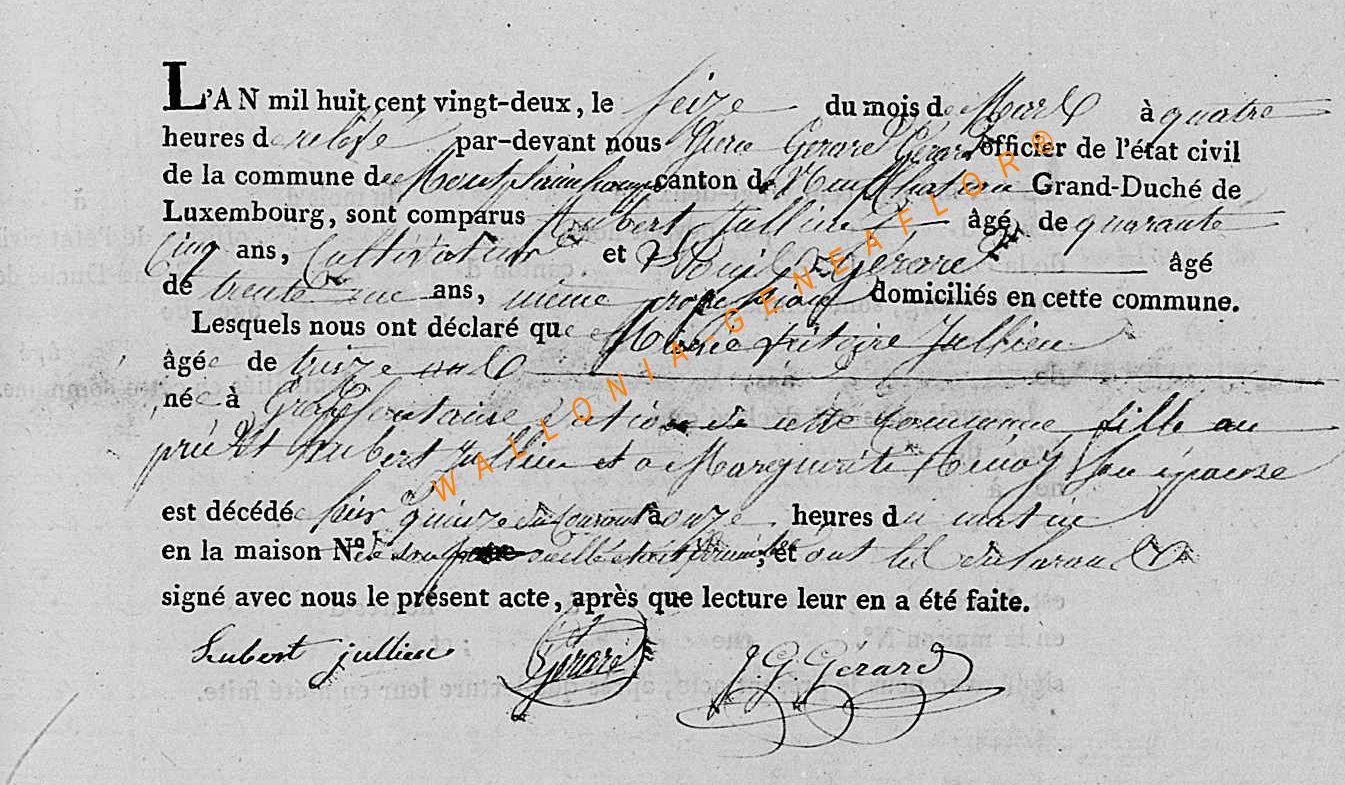 L'AN mil huit cent vingt-deux, le seize du mois de Mars à quatre
heures de relevé par-devant nous Gerard officier de l'état civil
de la commune de canton de Neufchateau Grand-Duché de
Luxembourg, sont comparus hubert Jullien âgé de quarante
Cinq ans, Cultivateur et Gerard âgé
de trente ans, même profession domiciliés en cette commune.
Lesquels nous ont déclaré que Marie Jullien
âgée de treize ans
née à Grapfontaine de cette Commune fille au
hubert Jullien et a Marguerite son épouse
est décédée hier quinze du Courant à onze heures du matin
en la maison No. de , et ont les déclarants
signé avec nous le présent acte, après que lecture leur en a été faite.
hubert jullien Gerard J G Gerard
WALLONIA-GENEAFLOR®